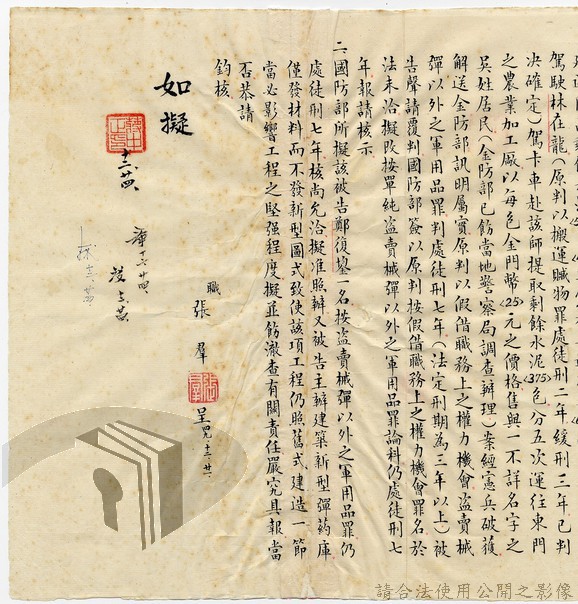 駕駛林在龍(原判以搬運贓物罪處徒刑二年緩刑三年已判
決確定)駕卡車赴該師提取剩餘水泥<375>包分五次運往東門
之農業加工廠以每包金門幣<25>元之價格售與一不詳名字之
吳姓居民(金防部已飭當地警察局調查辦理)案經憲兵破獲
解送金防部訊明屬實原判以假借職務上之權力機會盜賣械
彈以外之軍用品罪判處徒刑七年(法定刑期為三年以上)被
告聲請覆判國防部簽以原判按假借職務上之權力機會罪名於
法未洽擬改按單純盜賣械彈以外之軍用品罪論料仍處徒刑七
年報請核示
二國防部所擬該被告鄭復基一名按盜賣械彈以外之軍用品罪仍
處徒刑七年核尚允洽擬准照辦又被告主辦建築新型彈藥庫
僅發材料而不發新型圖式致使該項工程仍照舊式建造一節
當必影響工程之堅強程度擬並飭澈查有關責任嚴究具報當
否恭請
鈞核
職
張羣
張羣
呈
如擬
蔣中正印
十二廿四
請合法使用公開之影像